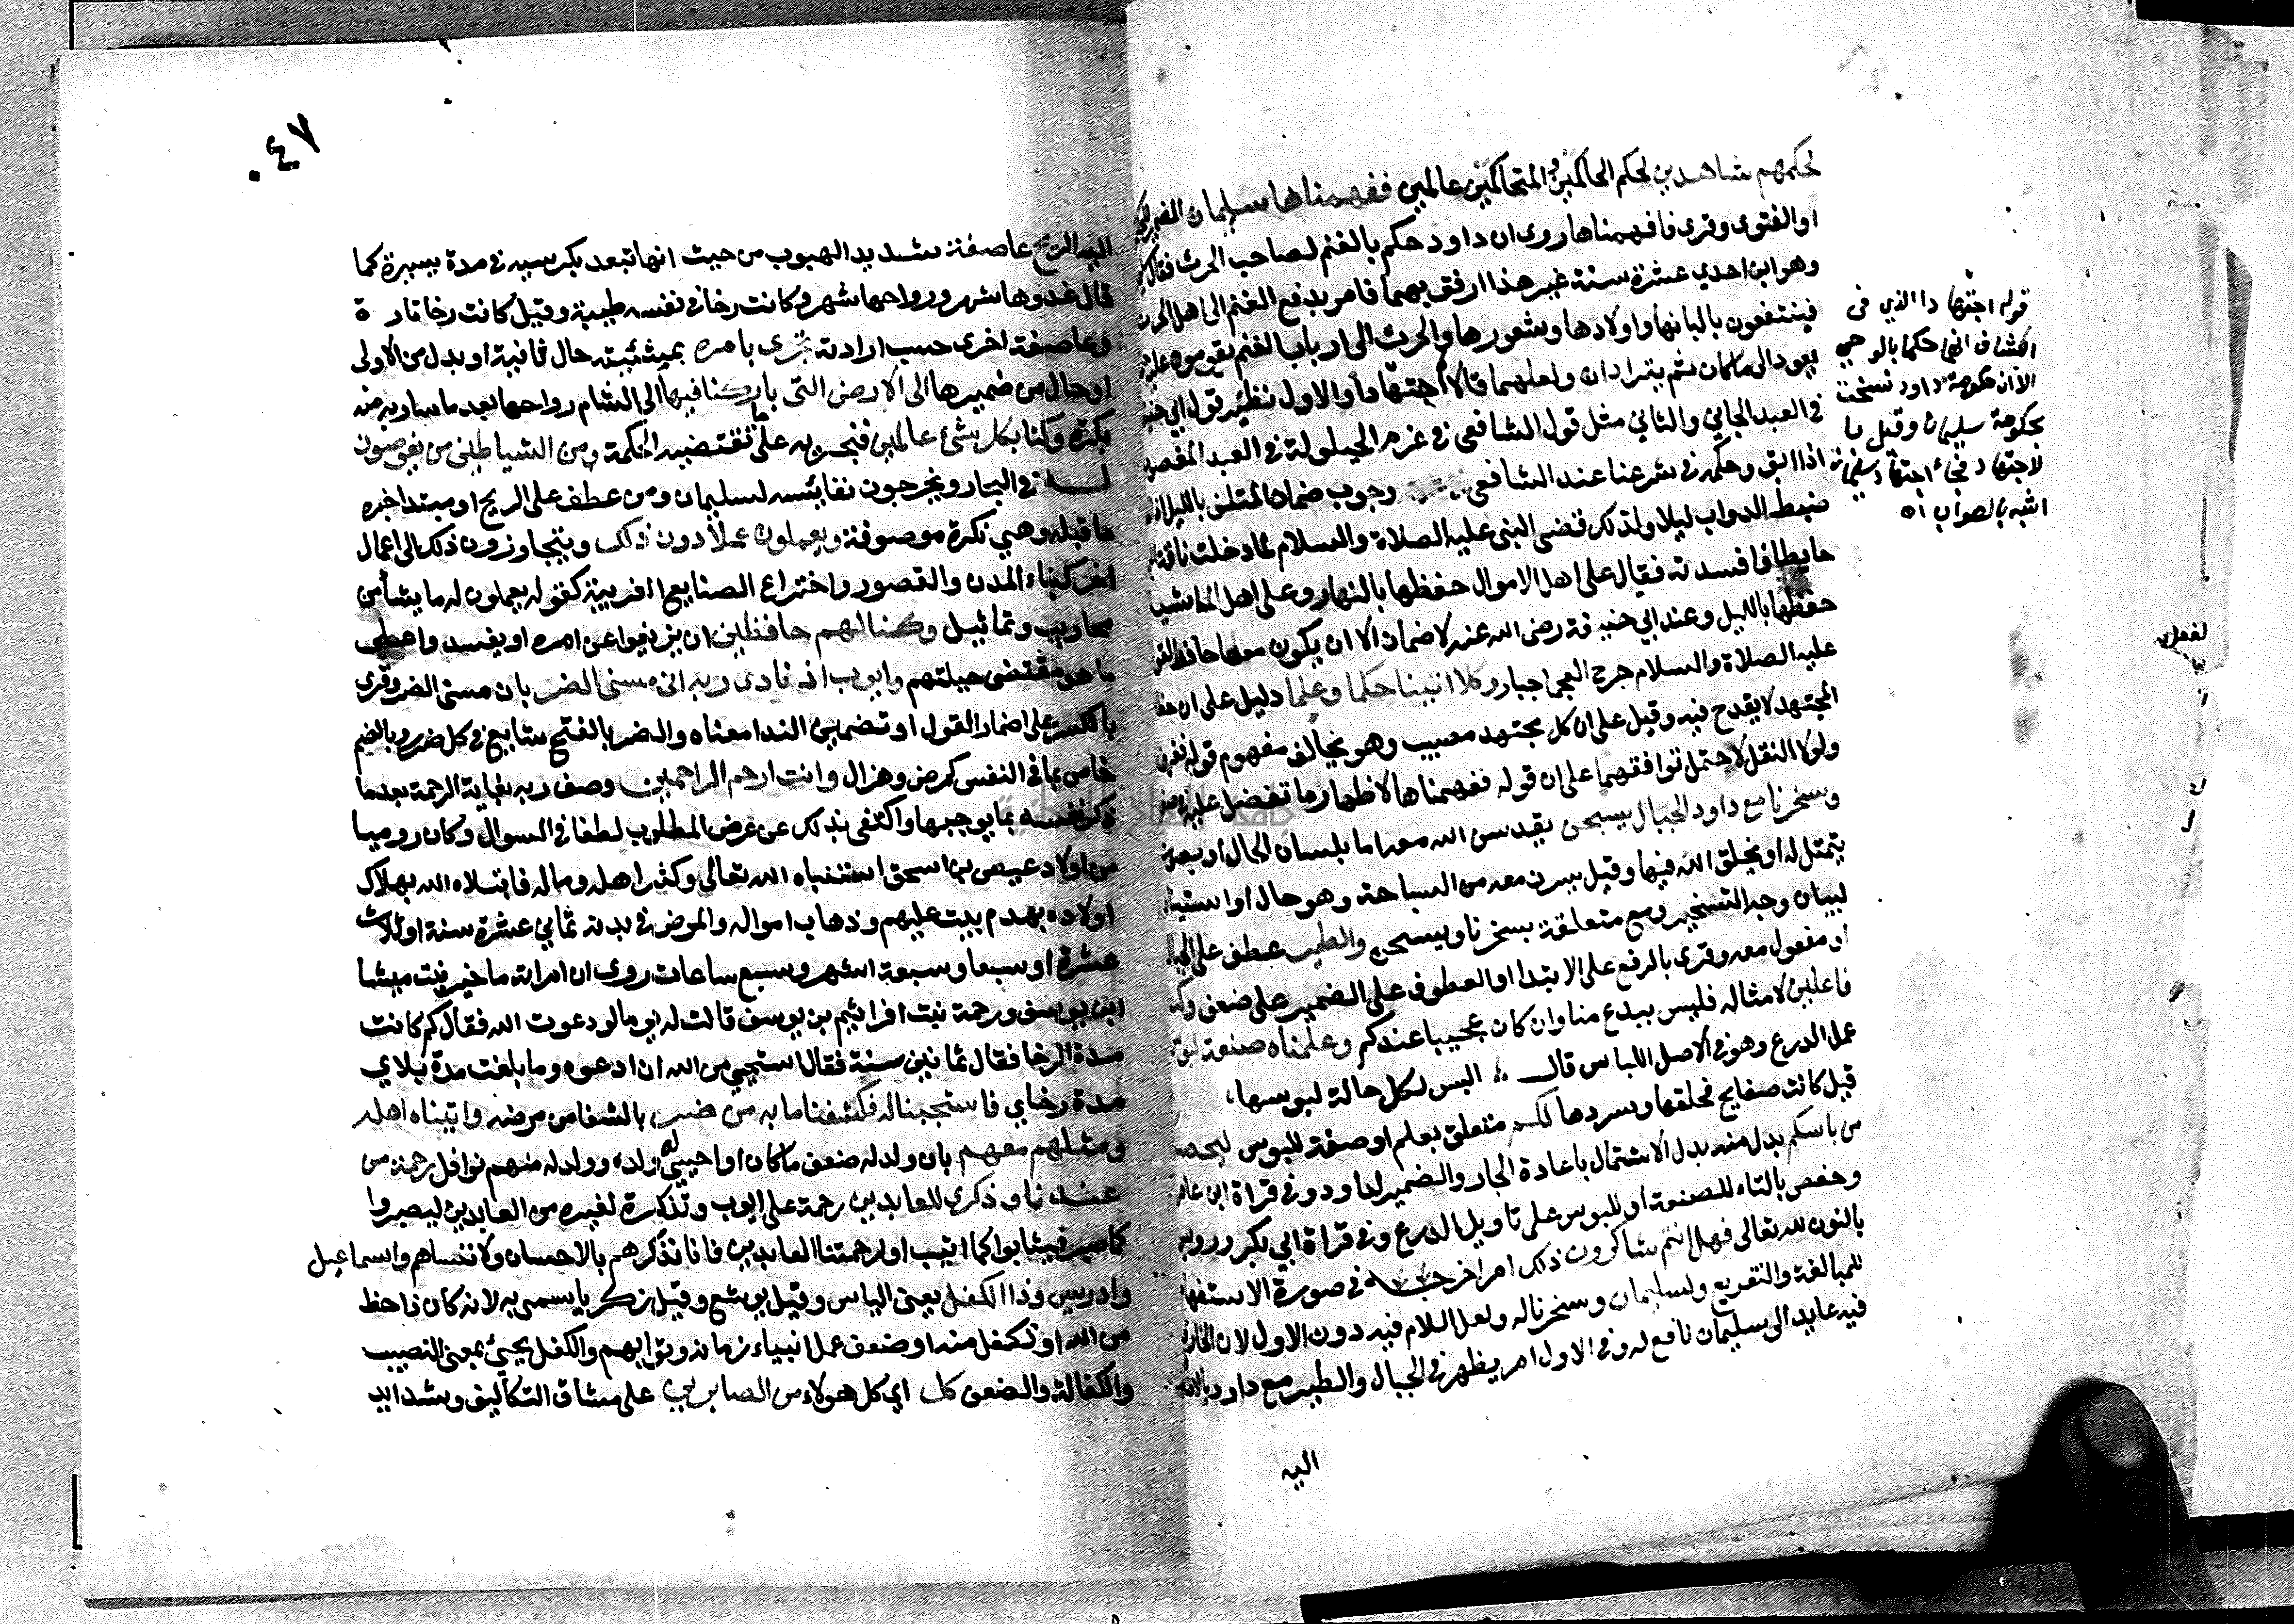 لحكمهم شاهدين لحكم الحاكمين والمتحاكمين عالمين ففهمناها سليمان الضمير للحكومة
او الفتوى وقرى فافهمناها روى ان داود حكم بالغنم لصاحب الحرث فقال
وهو ابن احدي عشرة سنة غير هذا ارفق بهما فامر بدفع الغنم الى اهل الحرث
فينتفعون بالبانها واولادها وشعورها والحرث الى ارباب الغنم يقومون عليه
يعود الى ما كان ثم يترادان ولعلهما قالا اجتهادا والاول نظير قول ابي حنيفة
في العبد الجاني والثاني مثل قول الشافعي في غرم الحيلولة في العبد المغصوب
اذا ابق وحكمه في شرعنا عند الشافعي وجوب ضمان المتلف بالليل اذ
ضبط الدواب ليلا ولذلك قضى النبي عليه الصلاة والسلام لما دخلت ناقة
حايطا فافسدته فقال على اهل الاموال حفظها بالنهار وعلى اهل الماشية
حفظها بالليل وعند ابي حنيفة رضى الله عنه لا ضمان الا ان يكون معها حافظ لقوله
عليه الصلاة والسلام جرح العجما جبار وكلا اتينا حكما وعلما دليل على ان خطا
المجتهد لا يقدح فيه وقيل على ان كل مجتهد مصيب وهو يخالف مفهوم قوله ففهمناها
ولولا النقل لاحتمل توافقهما على ان قوله ففهمناها لاظهار ما تفضل عليه في صغره
وسخرنا مع داود الجبال يسبحن يقدسن الله معه اما بلسان الحال او بصوت
يتمثل له او يخلق الله فيها وقيل يسرن معه من السباحة وهو حال او استيناف
لبيان وجه التسخير ومع متعلقة بسخرنا او يسبحن والطير عطف على الجبال
او مفعول معه وقرى بالرفع على الابتدا او العطف على الضمير على ضعف وكنا
فاعلين لامثاله فليس ببدع منا وان كان عجيبا عندكم وعلمناه صنعة لبوس
عمل الدرع وهو في الاصل اللباس قال البس لكل حالة لبوسها
قيل كانت صفايح فحلقها وسردها لكم متعلق بعلم او صفة للبوس ليحصنكم
من باسكم بدل منه بدل الاشتمال باعادة الجار والضمير لداود وفي قراة ابن عامر
وحفص بالتاء للصنعة او للبوس على تاويل الدرع وفي قراة ابي بكر ورويس
بالنون لله تعالى فهل انتم شاكرون ذلك امر اخرجه في صورة الاستفهام
للمبالغة والتقريع ولسليمان وسخرنا له ولعل اللام فيه دون الاول لان الخارق
فيه عايد الى سليمان نافع له وفي الاول امر يظهر في الجبال والطير مع داود بالاضافة
اليه
قوله اجتهادا الذي في
الكشاف انهما حكما بالوحي
الا ان حكومة داود نسخت
بحكومة سليمان وقيل با
لاجتهاد فجاء اجتهاد سليمان
اشبه بالصواب اه
٠٤٧
اليه الريح عاصفة شديد الهبوب من حيث انها تبعد بكرسيه في مدة يسيرة كما
قال غدوها شهر ورواحها شهر وكانت رخا في نفسه طيبة وقيل كانت رخا تارة
وعاصفة اخرى حسب ارادته تجري بامره بمشيئته حال ثانية او بدل من الاولى
او حال من ضميرها الى الارض التي باركنا فيها الى الشام رواحها بعد ما سار به منه
بكرة وكنا بكل شئ عالمين فنجريه على ما تقتضيه الحكمة ومن الشياطين من يغوصون
له في البحار ويخرجون نفايسه لسليمان ومن عطف على الريح او مبتدا خبره
ما قبله وهي نكرة موصوفة ويعملون عملا دون ذلك ويتجاوزون ذلك الى اعمال
اخر كبناء المدن والقصور واختراع الصنايع الغريبة كقوله يعملون له ما يشأ من
محاريب وتماثيل وكنا لهم حافظين ان يزيغوا عن امره او يفسدوا على
ما هو مقتضى جبلتهم وايوب اذ نادى ربه اني مسني الضر بان مسني الضر وقرى
بالكسر على اضمار القول او تضمين الندا معناه والضر بالفتح شايع في كل ضرر وبالضم
خاص بما في النفس كمرض وهزال وانت ارحم الراحمين وصف ربه بغاية الرحمة بعد ما
ذكر نفسه بما يوجبها واكتفى بذلك عن عرض المطلوب لطفا في السوال وكان روميا
من اولاد عيص بن اسحق استنباه الله تعالى وكثر اهله وماله فابتلاه الله بهلاك
اولاده بهدم بيت عليهم وذهاب امواله والمرض في بدنه ثماني عشرة سنة او ثلاث
عشرة او سبعا وسبعة اشهر وسبع ساعات روى ان امراته ماخير بنت ميشا
ابن يوسف ورحمة بنت افرائيم بن يوسف قالت له يوما لو دعوت الله فقال كم كانت
مدة الرخا فقال ثمانين سنة فقال استحيي من الله ان ادعوه وما بلغت مدة بلاي
مدة رخاي فاستجبنا له فكشفنا ما به من ضر بالشفا من مرضه واتيناه اهله
ومثلهم معهم بان ولد له ضعف ما كان او احيي له ولده وولد له منهم نوافل رحمة من
عندنا وذكرى للعابدين رحمة على ايوب وتذكرة لغيره من العابدين ليصبروا
كما صبر فيثابوا كما اثيب او لرحمتنا العابدين فانا نذكرهم بالاحسان ولا ننساهم واسماعيل
وادريس وذا الكفل يعني الياس وقيل يوشع وقيل زكريا سمى به لانه كان ذا حظ
من الله او تكفل منه او ضعف عمل انبياء زمانه وثوابهم والكفل يجئ بمعنى النصيب
والكفالة والضعف كل اي كل هولاء من الصابرين على مشاق التكاليف وشدايد